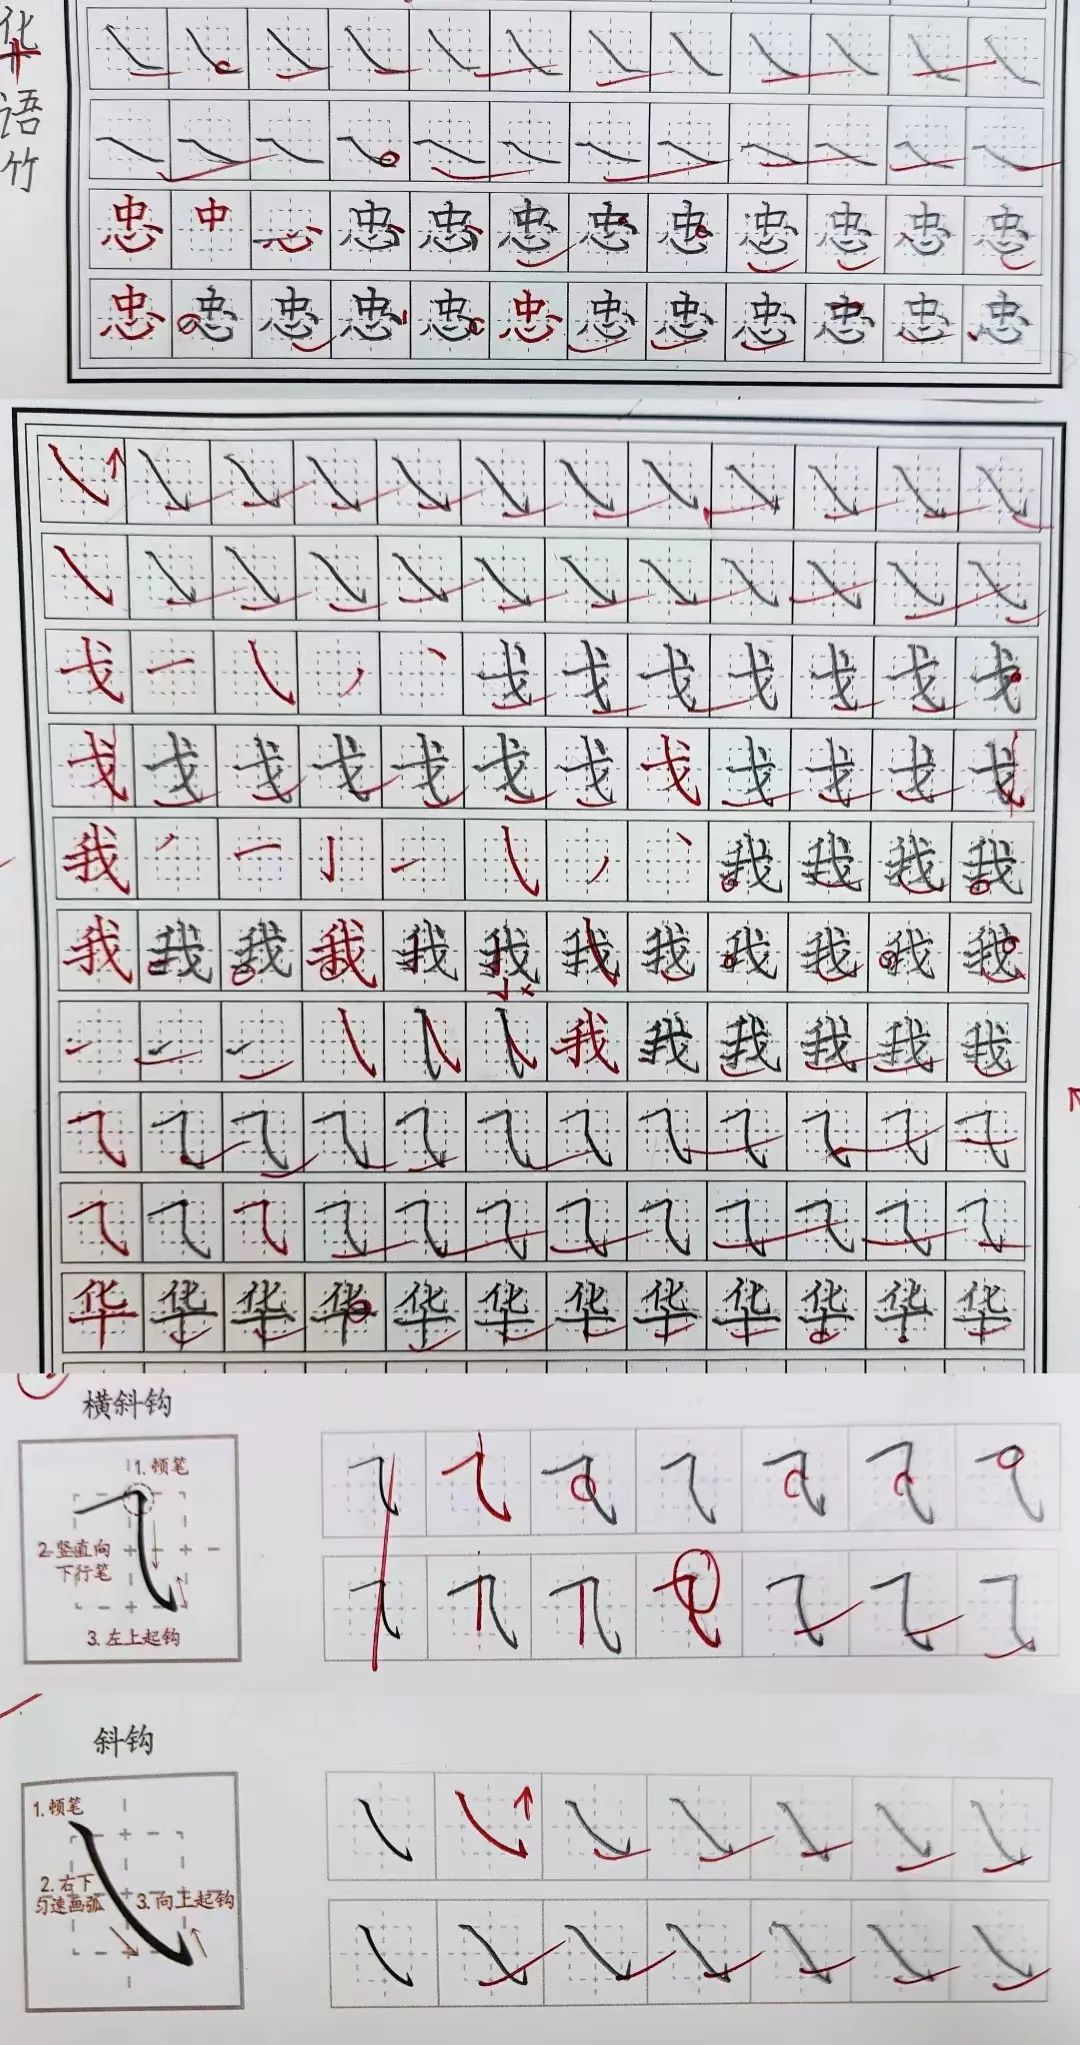 华
语
竹
忠 中 心 忠 忠 忠 忠 忠 忠 忠 忠 忠
忠 忠 忠 忠 忠 忠 忠 忠 忠 忠 忠 忠
戈 戈 戈 戈 戈 戈 戈 戈
戈 戈 戈 戈 戈 戈 戈 戈 戈 戈 戈 戈
我 我 我 我 我
我 我 我 我 我 我 我 我 我 我 我 我
我 我 我 我 我 我
华 华 华 华 华 华 华 华 华 华 华 华
横斜钩
1.顿笔
2.竖直向
下行笔
3.左上起钩
斜钩
1.顿笔
2.右下
匀速画弧
3.向上起钩